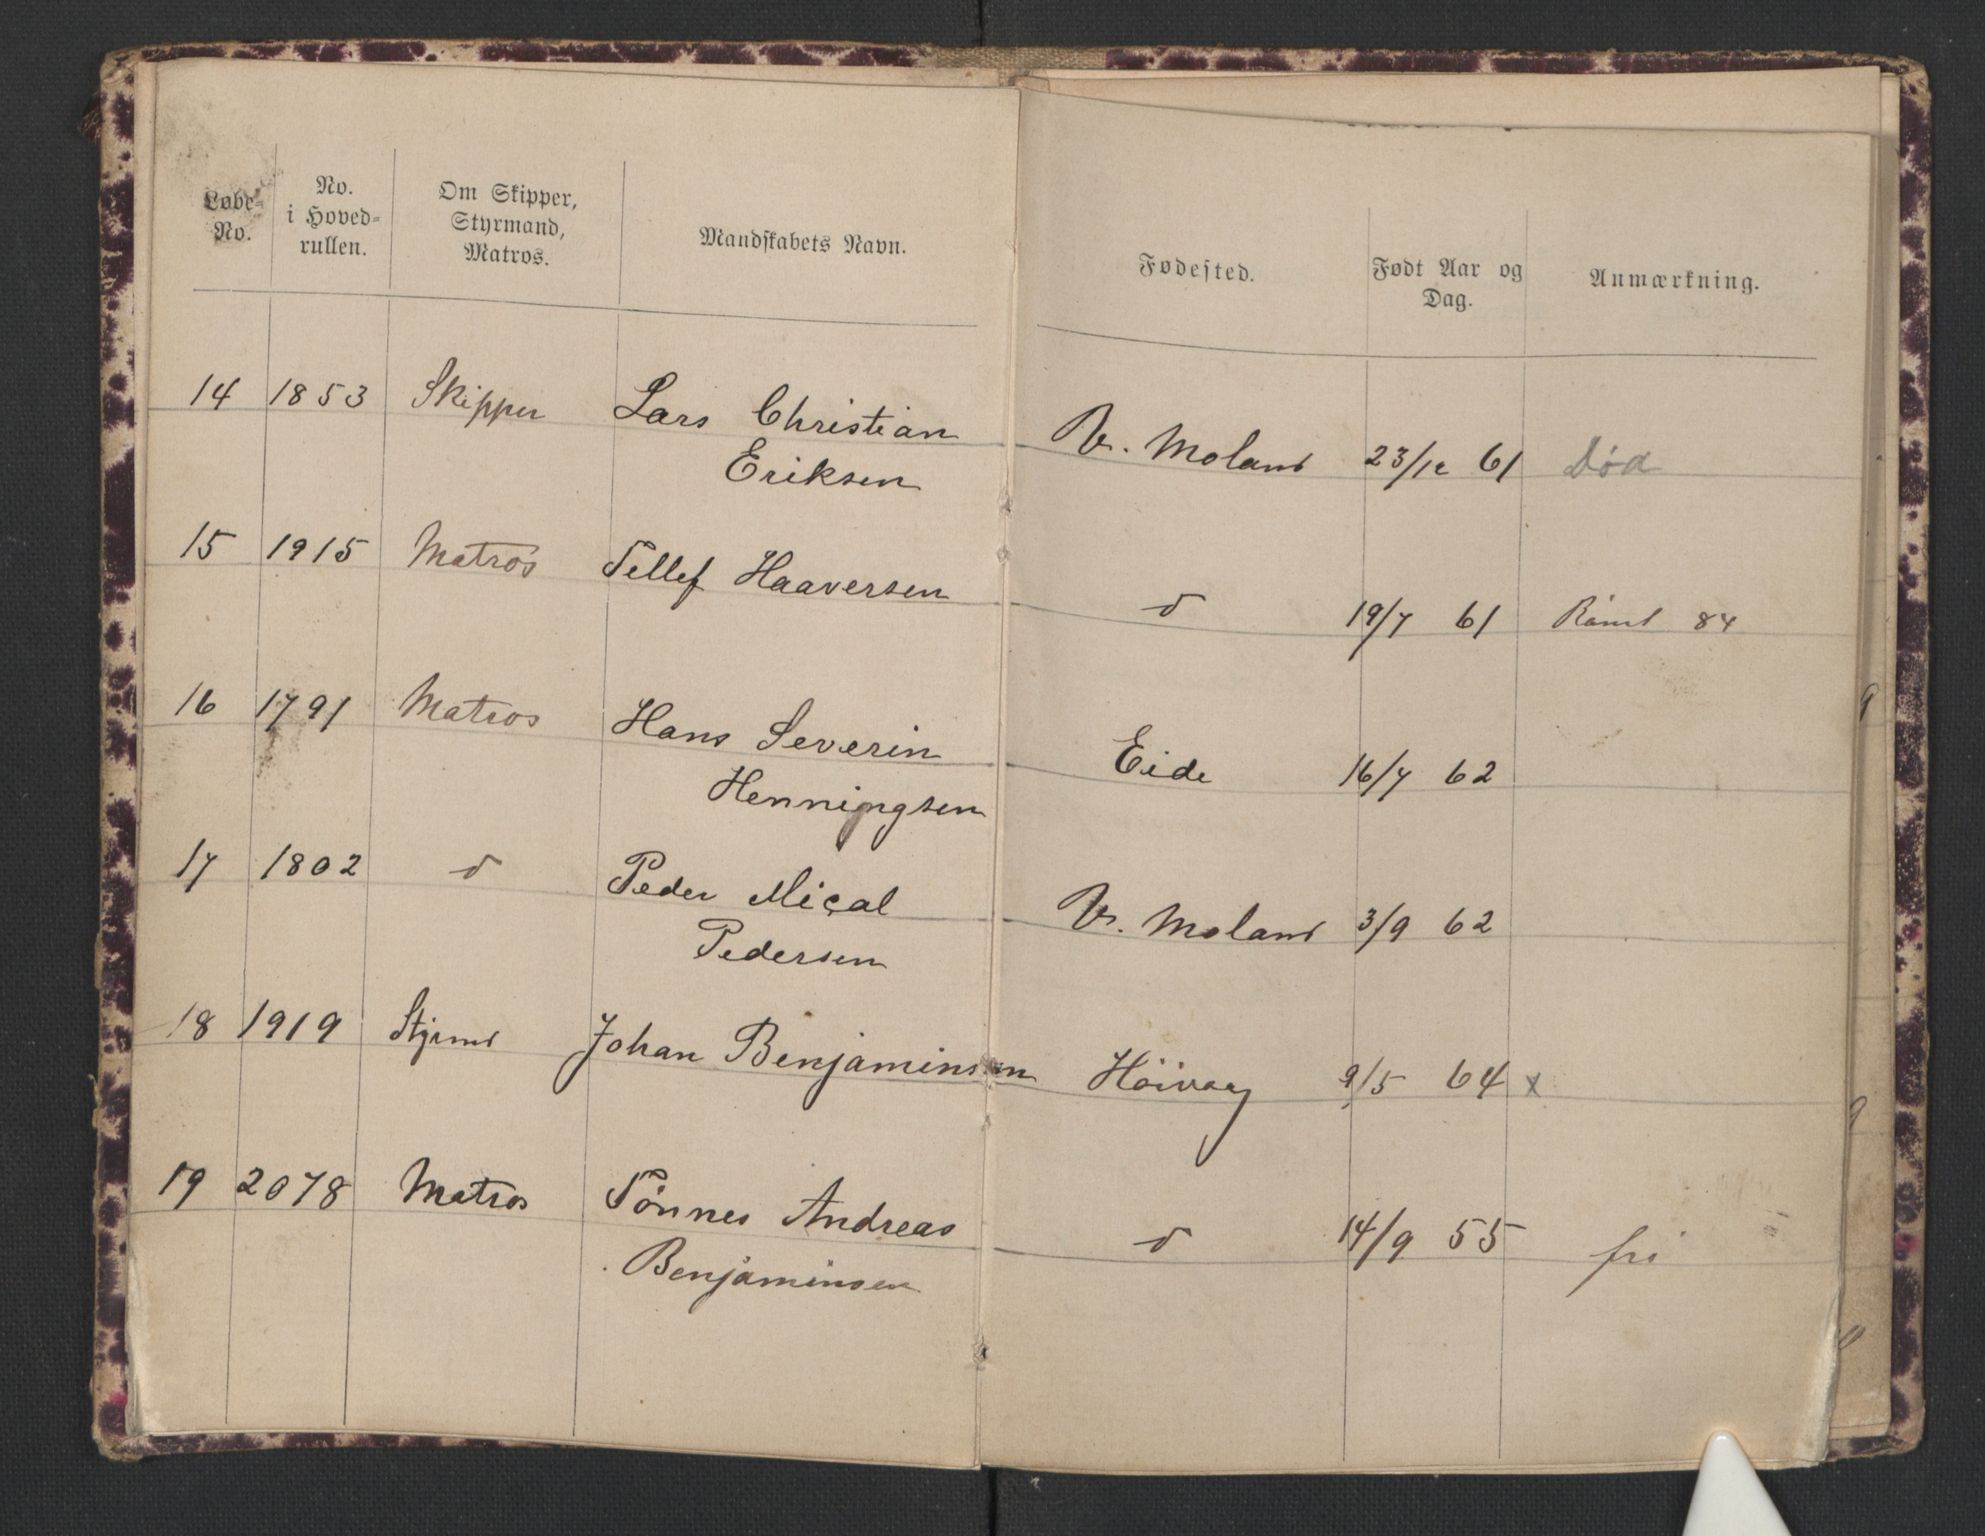 Løbe-No. No. i Hoved-rullen. Om Skipper, Styrmand, Matros. Mandskabets Navn. Fødested. Født Aar og Dag. Anmærkning.
14 1853 Skipper Lars Christian V. Moland 23/12 61 Død
Eriksen
15 1915 Matros Tellef Haaversen d 19/7 61 Rømt 84
16 1791 Matros Hans Severin Eide 16/7 62
Henningsen
17 1802 d Peder Miçal V. Moland 3/9 62
Pedersen
18 1919 Styrmd Johan Benjaminsen Höivaag 9/5 64 x
19 2078 Matros Tönnes Andreas d 14/9 55 fri
Benjaminsen